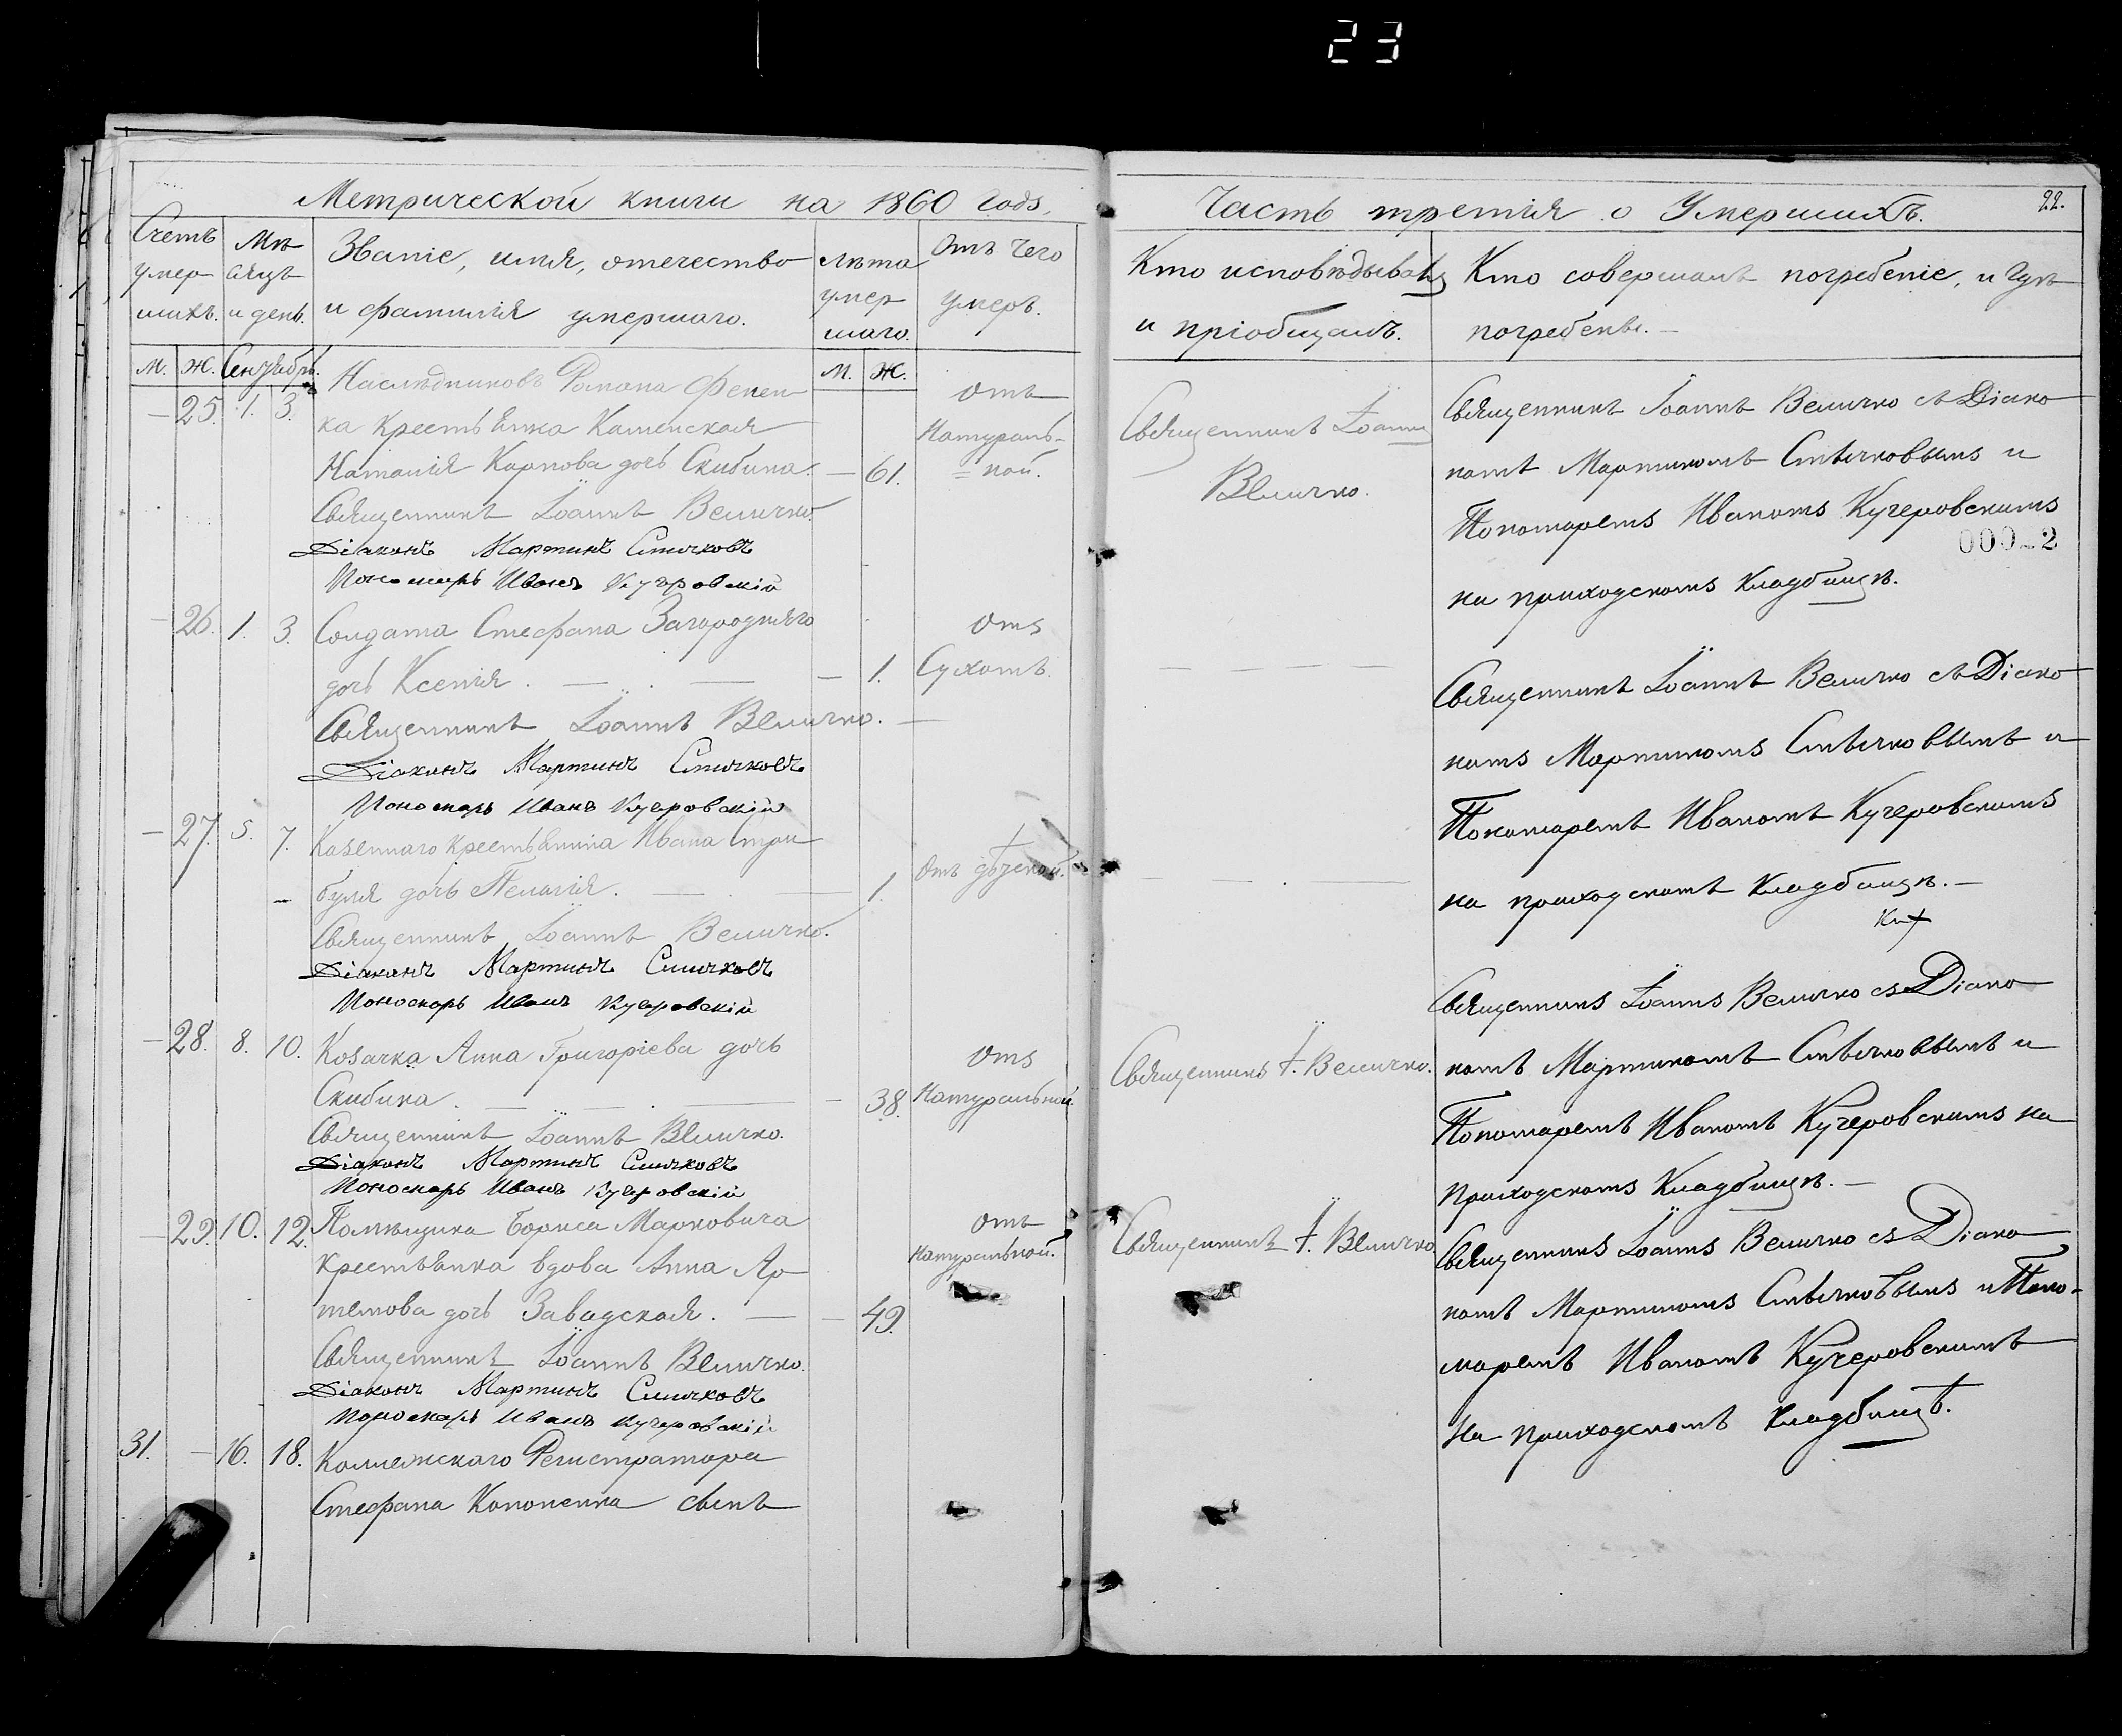 23
Метрической книги на 1860 годъ.
Счетъ умер- шихъ.
Мѣ сяцъ и день.
Званіе, имя, отечество и фамилія умершаго.
Лѣта умер шаго.
Отъ чего умеръ.
М. Ж. Сентябрь. М. Ж.
25. 1. 3. Наслѣдниковъ Романа
ка Крестьянка Каменская
Наталія Карпова дочь Скибина. — 61.
Отъ
Натураль-
ной.
Священникъ Іоаннъ Величко.
Діаконъ Мартинъ Стычковъ
Пономарь Иванъ Кучеровскій
26. 1. 3. Солдата Стефана Загородняго
дочь Ксенія. — 1.
Отъ
Сухотъ.
Священникъ Іоаннъ Величко.
Діаконъ Мартинъ Стычковъ
Пономарь Иванъ Кучеровскій
27. 5. 7. Казеннаго крестьянина Ивана Стри
буля дочь Пелагія. — 1.
Отъ дѣтской.
Священникъ Іоаннъ Величко.
Діаконъ Мартинъ Стычковъ
Пономарь Иванъ Кучеровскій
28. 8. 10. Козачка Анна Григоріева дочь
Скибина. — 38.
Отъ
Натуральной
Священникъ Іоаннъ Величко.
Діаконъ Мартинъ Стычковъ
Пономарь Иванъ Кучеровскій
29. 10. 12. Помѣщика Бориса Марковича
крестьянка вдова Анна Ар
темова дочь Завадская. — 49.
Отъ
Натуральной.
Священникъ Іоаннъ Величко.
Діаконъ Мартинъ Стычковъ
Пономарь Иванъ Кучеровскій
31. — 16. 18. Коллежскаго Регистратора
Стефана Кононенка сынъ
Часть третія о Умершихъ.
22.
Кто исповѣдывалъ
и пріобщалъ.
Кто совершалъ погребеніе, и гдѣ
погребены.
Священникъ Іоаннъ
Величко.
Священникъ Іоаннъ Величко съ Діако
номъ Мартиномъ Стычковымъ и
Пономаремъ Иваномъ Кучеровскимъ
на приходскомъ кладбищѣ.
Священникъ Іоаннъ Величко съ Діако
номъ Мартиномъ Стычковымъ и
Пономаремъ Иваномъ Кучеровскимъ
на приходскомъ кладбищѣ. —
Священникъ І. Величко.
Священникъ Іоаннъ Величко съ Діако
номъ Мартиномъ Стычковымъ и
Пономаремъ Иваномъ Кучеровскимъ на
приходскомъ кладбищѣ. —
Священникъ І. Величко
Священникъ Іоаннъ Величко съ Діако
номъ Мартиномъ Стычковымъ и Поно-
маремъ Иваномъ Кучеровскимъ
на приходскомъ кладбищѣ.